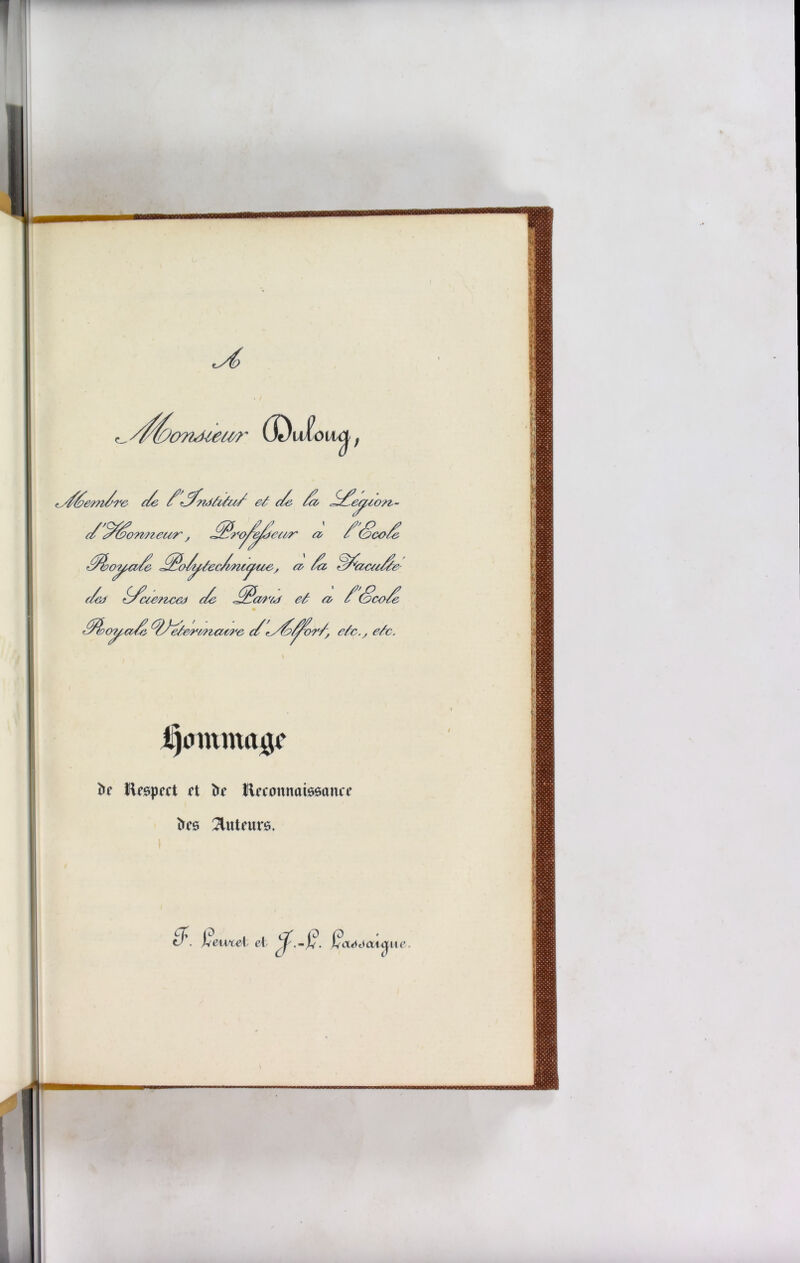 A
Monsieur Dulong,
Membre de l'Institut et de la Légion-
d'Honneur, Professeur à l'École
Royale Polytechnique, à la Faculté
des Sciences de Paris et à l'École
Royale Vétérinaire d'Alfort, etc., etc.
Hommage
de Respect et de Reconnaissance
des Auteurs.
F. Leuret et J.-L. Lassaigne.